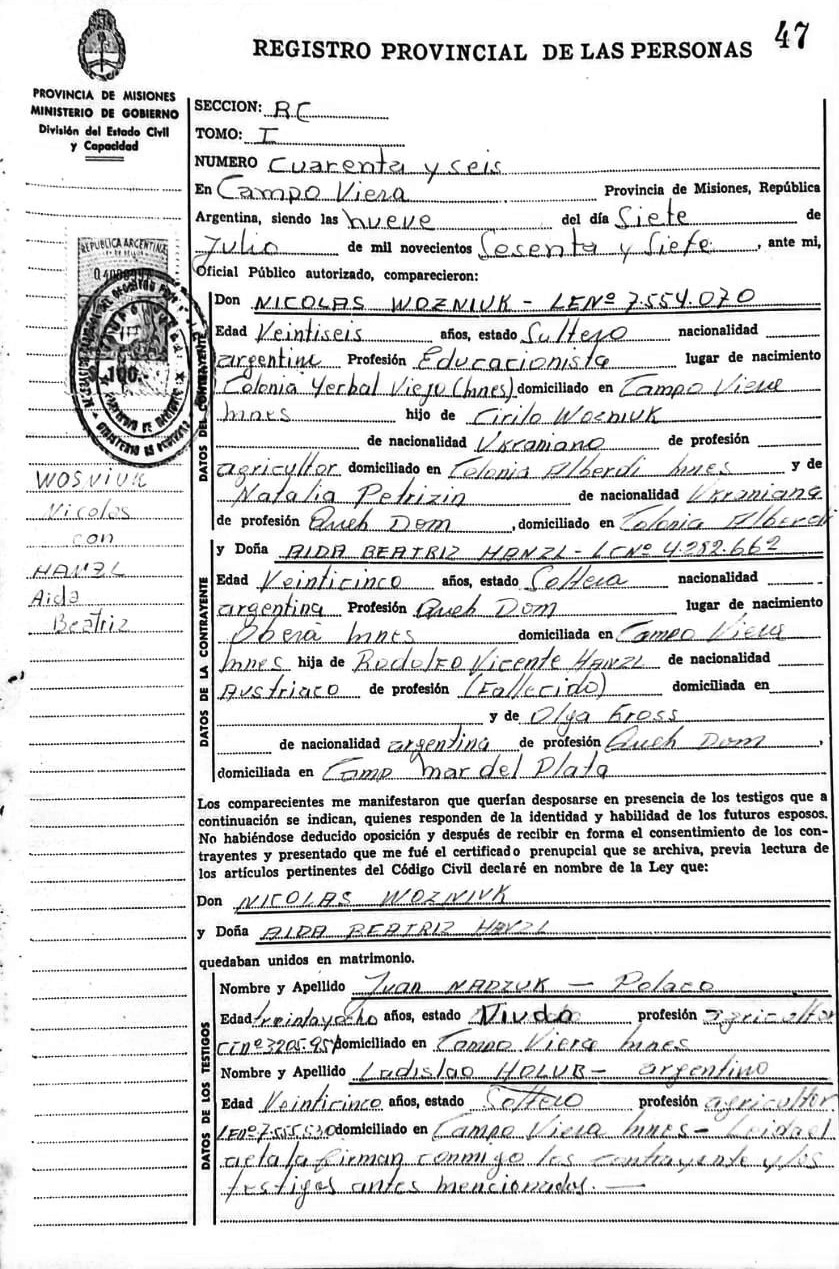 47
REGISTRO PROVINCIAL DE LAS PERSONAS
PROVINCIA DE MISIONES
MINISTERIO DE GOBIERNO
División del Estado Civil
y Capacidad
SECCION: RC
TOMO: I
NUMERO Cuarenta y seis
En Campo Viera Provincia de Misiones, República
Argentina, siendo las nueve del día Siete de
Julio de mil novecientos Sesenta y Siete, ante mi,
Oficial Público autorizado, comparecieron:
REPUBLICA ARGENTINA
100
WOSNIUK
Nicolas
con
HANZL
Aida
Beatriz
DATOS DEL CONTRAYENTE
Don NICOLAS WOZNIUK - LENº 7.554.070
Edad Veintiseis años, estado Soltero nacionalidad
argentino Profesión Educacionista lugar de nacimiento
Colonia Yerbal Viejo (Mnes) domiciliado en Campo Viera
Mnes hijo de Cirilo WOZNIUK
de nacionalidad Ukraniano de profesión
agricultor domiciliado en Colonia Alberdi Mnes y de
Natalia Petrizin de nacionalidad Ukraniana
de profesión Queh Dom, domiciliado en Colonia Alberdi
DATOS DE LA CONTRAYENTE
y Doña AIDA BEATRIZ HANZL - LCNº 4.282.662
Edad Veinticinco años, estado Soltera nacionalidad
argentina Profesión Queh Dom lugar de nacimiento
Oberá Mnes domiciliada en Campo Viera
Mnes hija de Rodolfo Vicente HANZL de nacionalidad
Austriaco de profesión (Fallecido) domiciliada en
y de Olga Gross
de nacionalidad argentina de profesión Queh Dom,
domiciliada en Camp Mar del Plata
Los comparecientes me manifestaron que querían desposarse en presencia de los testigos que a
continuación se indican, quienes responden de la identidad y habilidad de los futuros esposos.
No habiéndose deducido oposición y después de recibir en forma el consentimiento de los con-
trayentes y presentado que me fué el certificado prenupcial que se archiva, previa lectura de
los artículos pertinentes del Código Civil declaré en nombre de la Ley que:
Don NICOLAS WOZNIUK
y Doña AIDA BEATRIZ HANZL
quedaban unidos en matrimonio.
DATOS DE LOS TESTIGOS
Nombre y Apellido Juan NADZUK - Polaco
Edad treintayocho años, estado Viudo profesión agricultor
domiciliado en Campo Viera Mnes
Nombre y Apellido Ladislao HOLUB - argentino
Edad Veinticinco años, estado Soltero profesión agricultor
LENº 7.555.530 domiciliado en Campo Viera Mnes - Leida el
acta la firman conmigo los contrayente y los
testigos antes mencionados. -